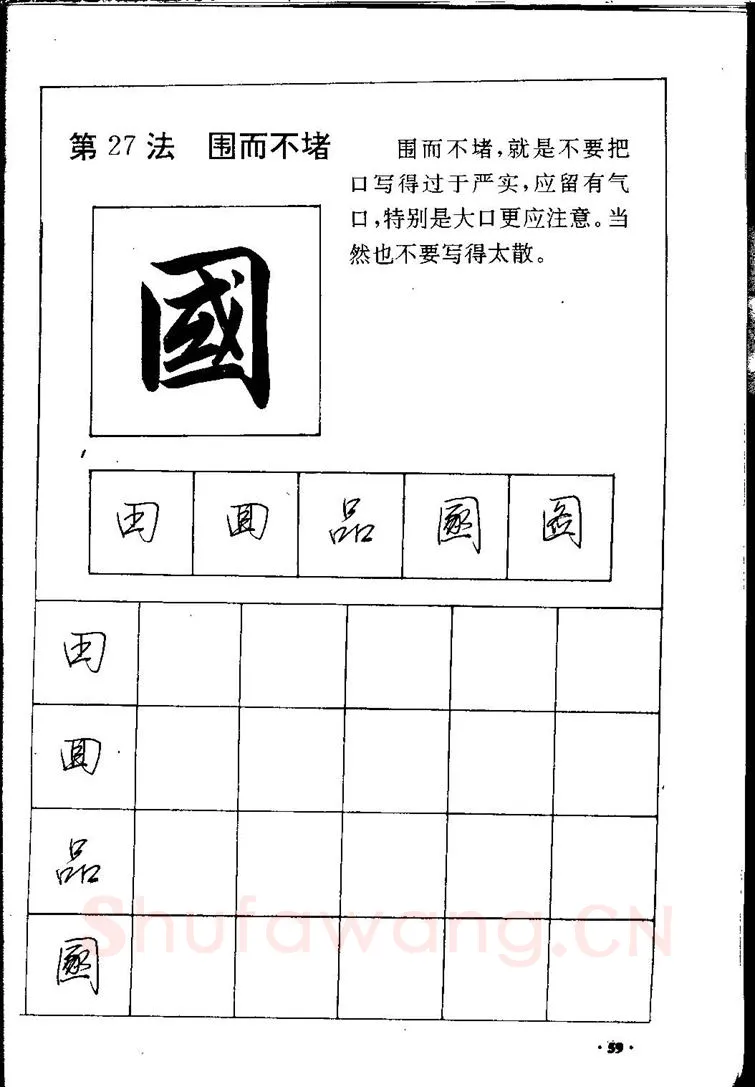 第27法 围而不堵
围而不堵,就是不要把
口写得过于严实,应留有气
口,特别是大口更应注意。当
然也不要写得太散。
國
田 品
田
品
Shufawang.CN
·59·